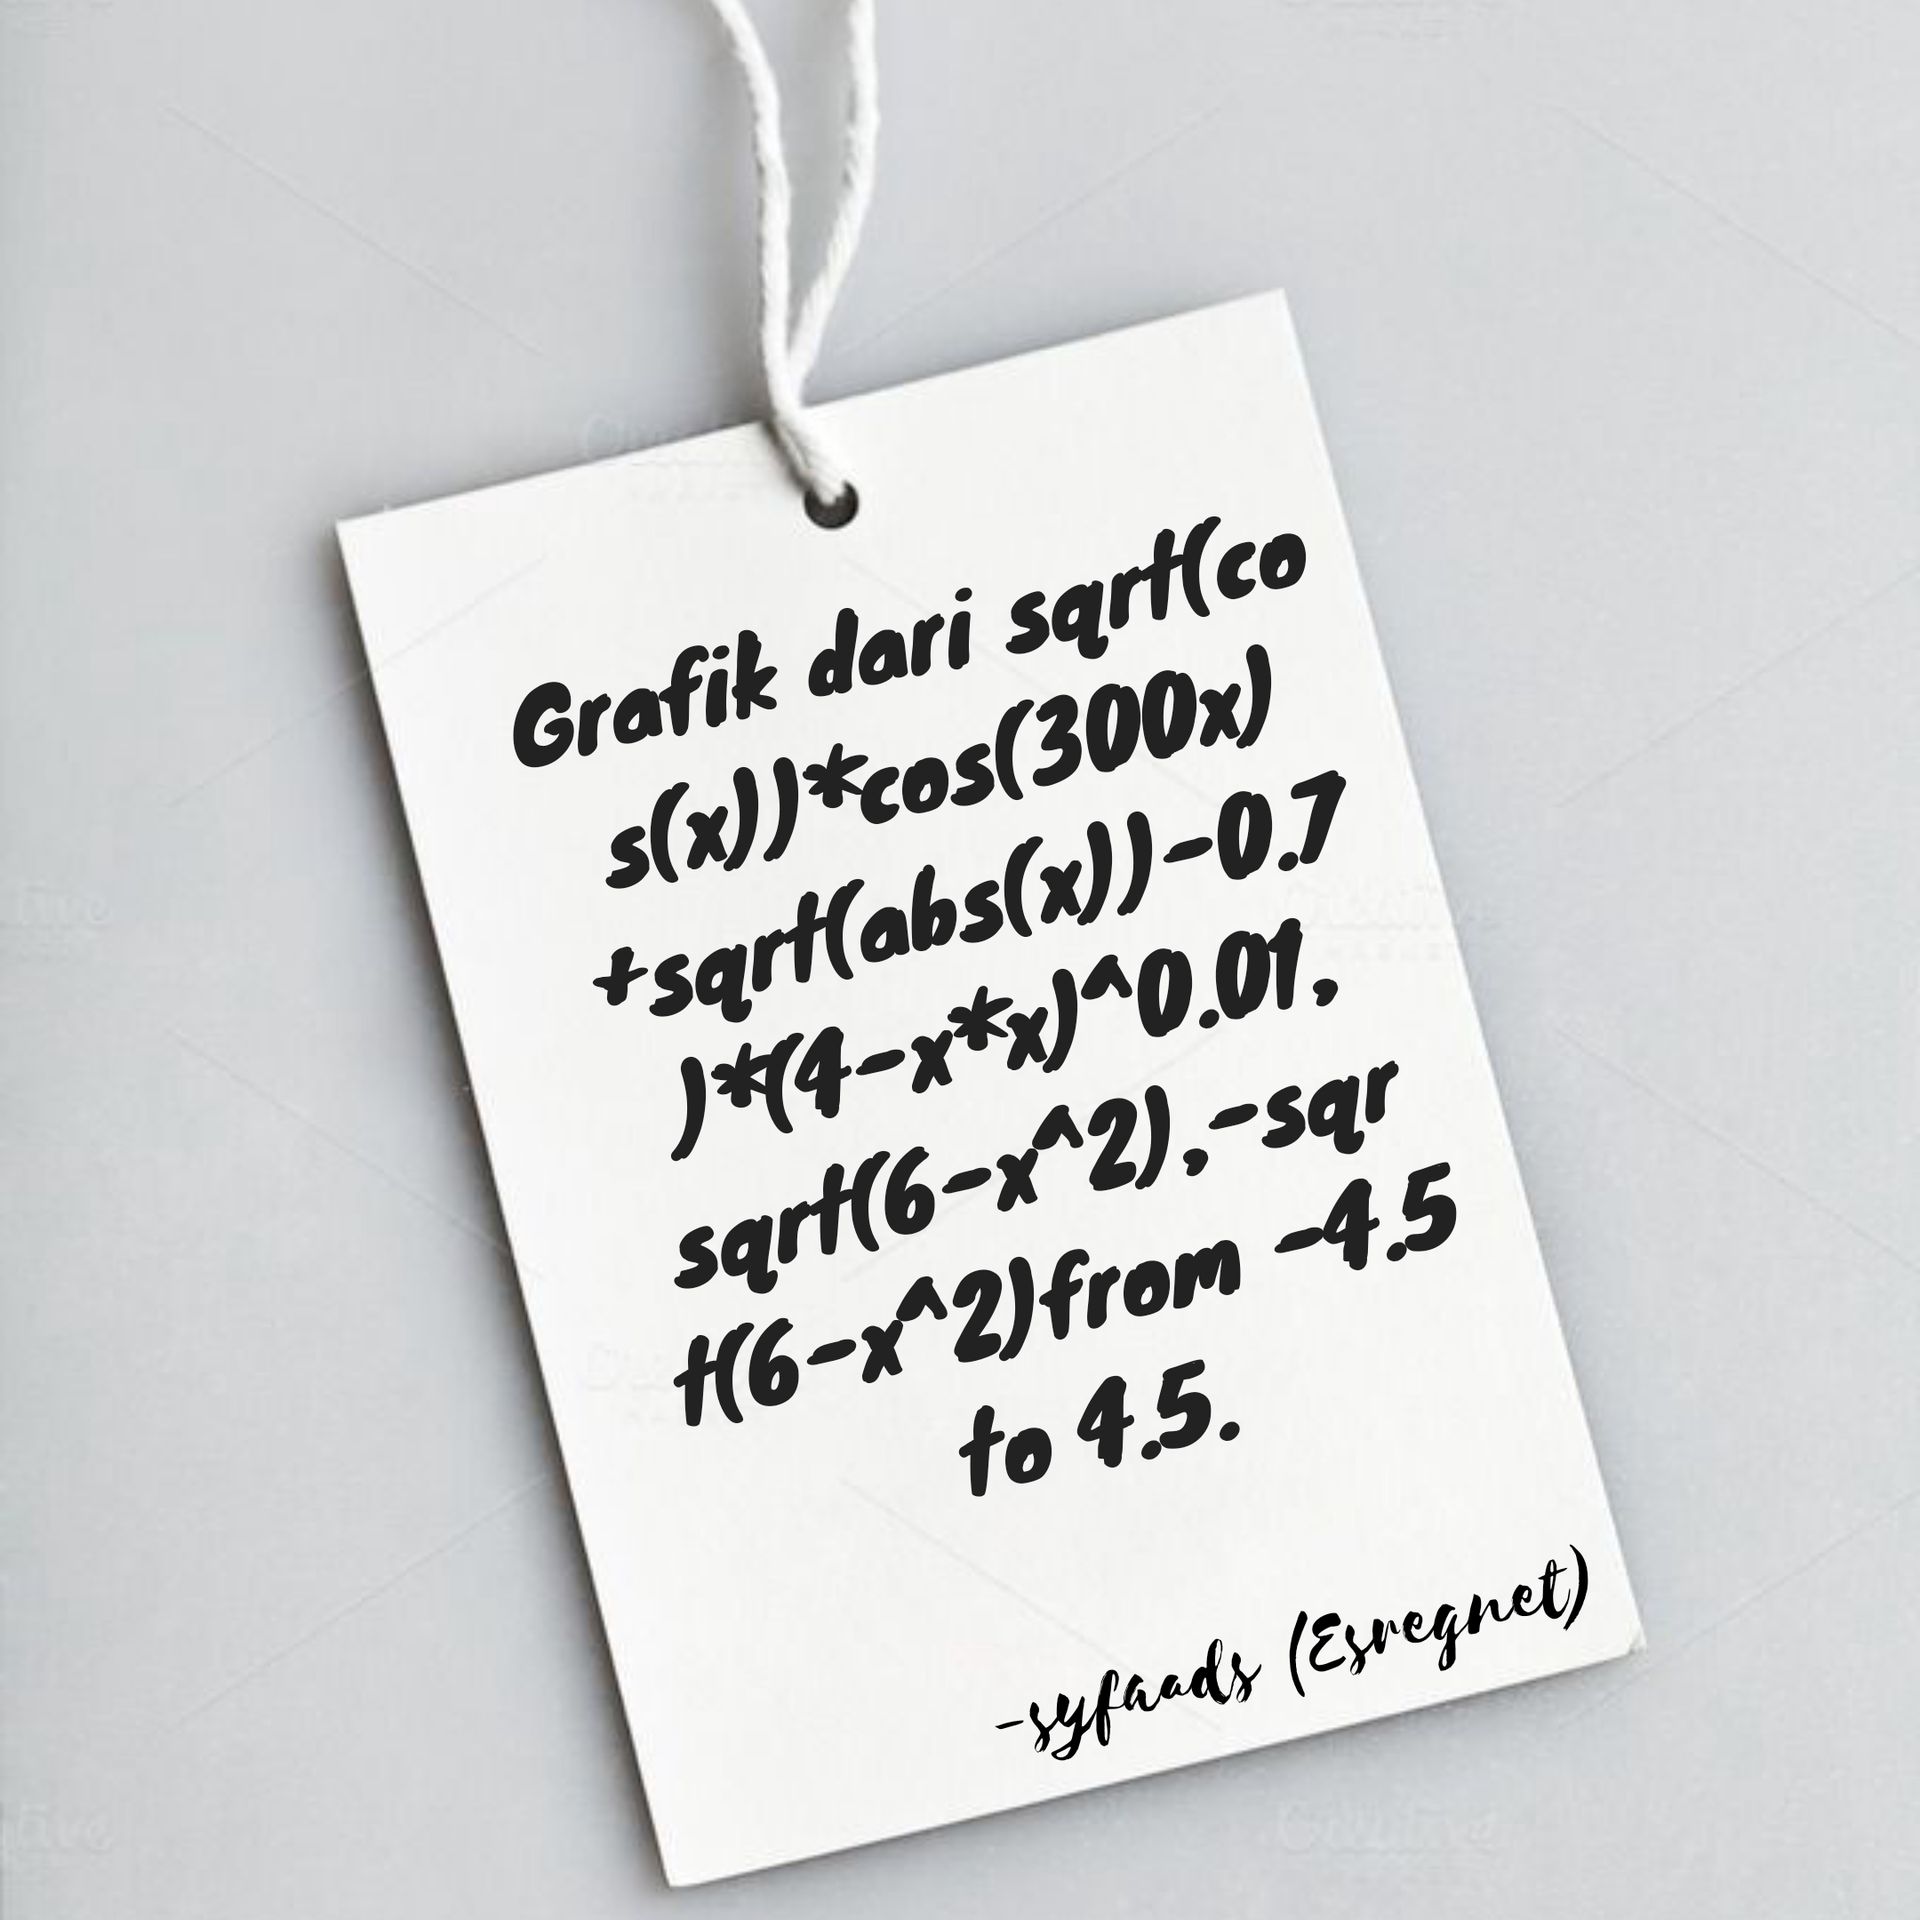 Grafik dari sqrt(co
s(x))*cos(300x)
+sqrt(abs(x))-0.7
)*(4-x*x)^0.01,
sqrt(6-x^2),-sqr
t(6-x^2)from -4.5
to 4.5.
-syfaads (Esregnet)